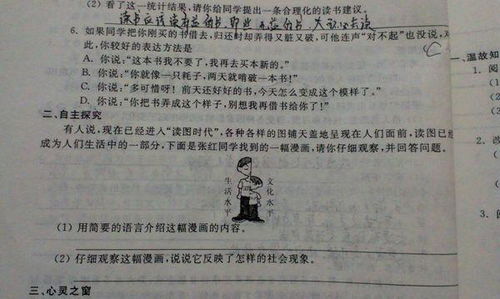 (2) 看了这一统计结果,请你给同学提出一条合理化的读书建议。
6. 如果同学把你刚买的书借去,归还时却弄得又脏又破,可他连声“对不起”也没说,对
此,你较好的表达方法是
C
A. 你说:“这本书我不要了,我再去买本新的。”
B. 你说:“你就像一只耗子,两天就啃破一本书!”
C. 你说:“多可惜呀!前天还好好的书,今天怎么变成这个模样了。”
D. 你说:“你把书弄成这个样子,别想我再借书给你了!”
二、自主探究
有人说,现在已经进入“读图时代”,各种各样的图铺天盖地呈现在人们面前,读图已经
成为人们生活中的一部分,下面是张红同学找到的一幅漫画,请你仔细观察,并回答问题。
生活水平
文化水平
(1) 用简要的语言介绍这幅漫画的内容。
(2) 仔细观察这幅漫画,说说它反映了怎样的社会现象。
三、心灵之窗
一、温故知
1. 阅
(1
(2
2. 改
3. 阅